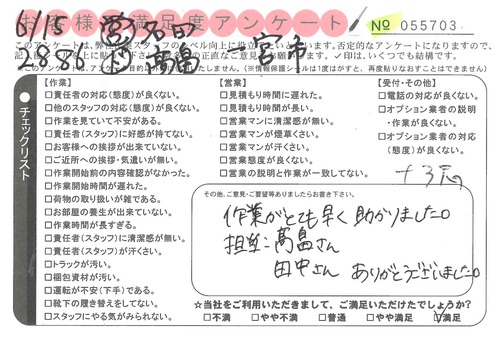 お客様満足度アンケート
No 055703
6/15
2886
一宮市
●チェックリスト
【作業】
□責任者の対応(態度)が良くない。
□他のスタッフの対応(態度)が良くない。
□作業を見ていて不安がある。
□責任者(スタッフ)に好感が持てない。
□お客様への挨拶が出来ていない。
□ご近所への挨拶・気遣いが無い。
□作業開始前の内容確認がなかった。
□作業開始時間が遅れた。
□荷物の取り扱いが雑である。
□お部屋の養生が出来ていない。
□作業時間が長すぎる。
□責任者(スタッフ)に清潔感が無い。
□責任者(スタッフ)が汗くさい。
□トラックが汚い。
□梱包資材が汚い。
□運転が不安(下手)である。
□靴下の履き替えをしてない。
□スタッフにやる気がみられない。
【営業】
□見積もり時間に遅れた。
□見積もり時間が長い。
□営業マンに清潔感が無い。
□営業マンが煙草くさい。
□営業マンが汗くさい。
□営業態度が良くない。
□営業の説明と作業が一致してない。
【受付・その他】
□電話の対応が良くない。
□オプション業者の説明
・作業が良くない。
□オプション業者の対応
(態度)が良くない。
その他、ご意見・ご要望等ありましたらお書き下さい。
作業がとても早く助かりました。
担当:髙畠さん
田中さん ありがとうございました。
☆当社をご利用いただきまして、ご満足いただけたでしょうか?
□不満 □やや不満 □普通 □やや満足 □満足